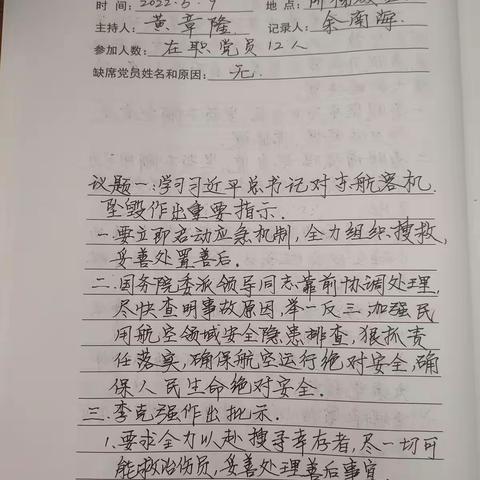 时间: 2022.5.9 地点:
主持人: 黄章隆 记录人: 余南海
参加人数: 在职党员12人
缺席党员姓名和原因: 无
议题一:学习习近平总书记对东航客机
坠毁作出重要指示.
一.要立即启动应急机制,全力组织搜救,
妥善处置善后.
二.国务院委派领导同志靠前协调处理,
尽快查明事故原因,举一反三加强民
用航空领域安全隐患排查,狠抓责
任落实,确保航空运行绝对安全,确
保人民生命绝对安全.
三.李克强作出批示.
1.要求全力以赴搜寻幸存者,尽一切可
能救治伤员,妥善处理善后事宜